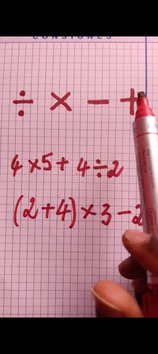 ÷ × − +
4×5+4÷2
(2+4)×3−2